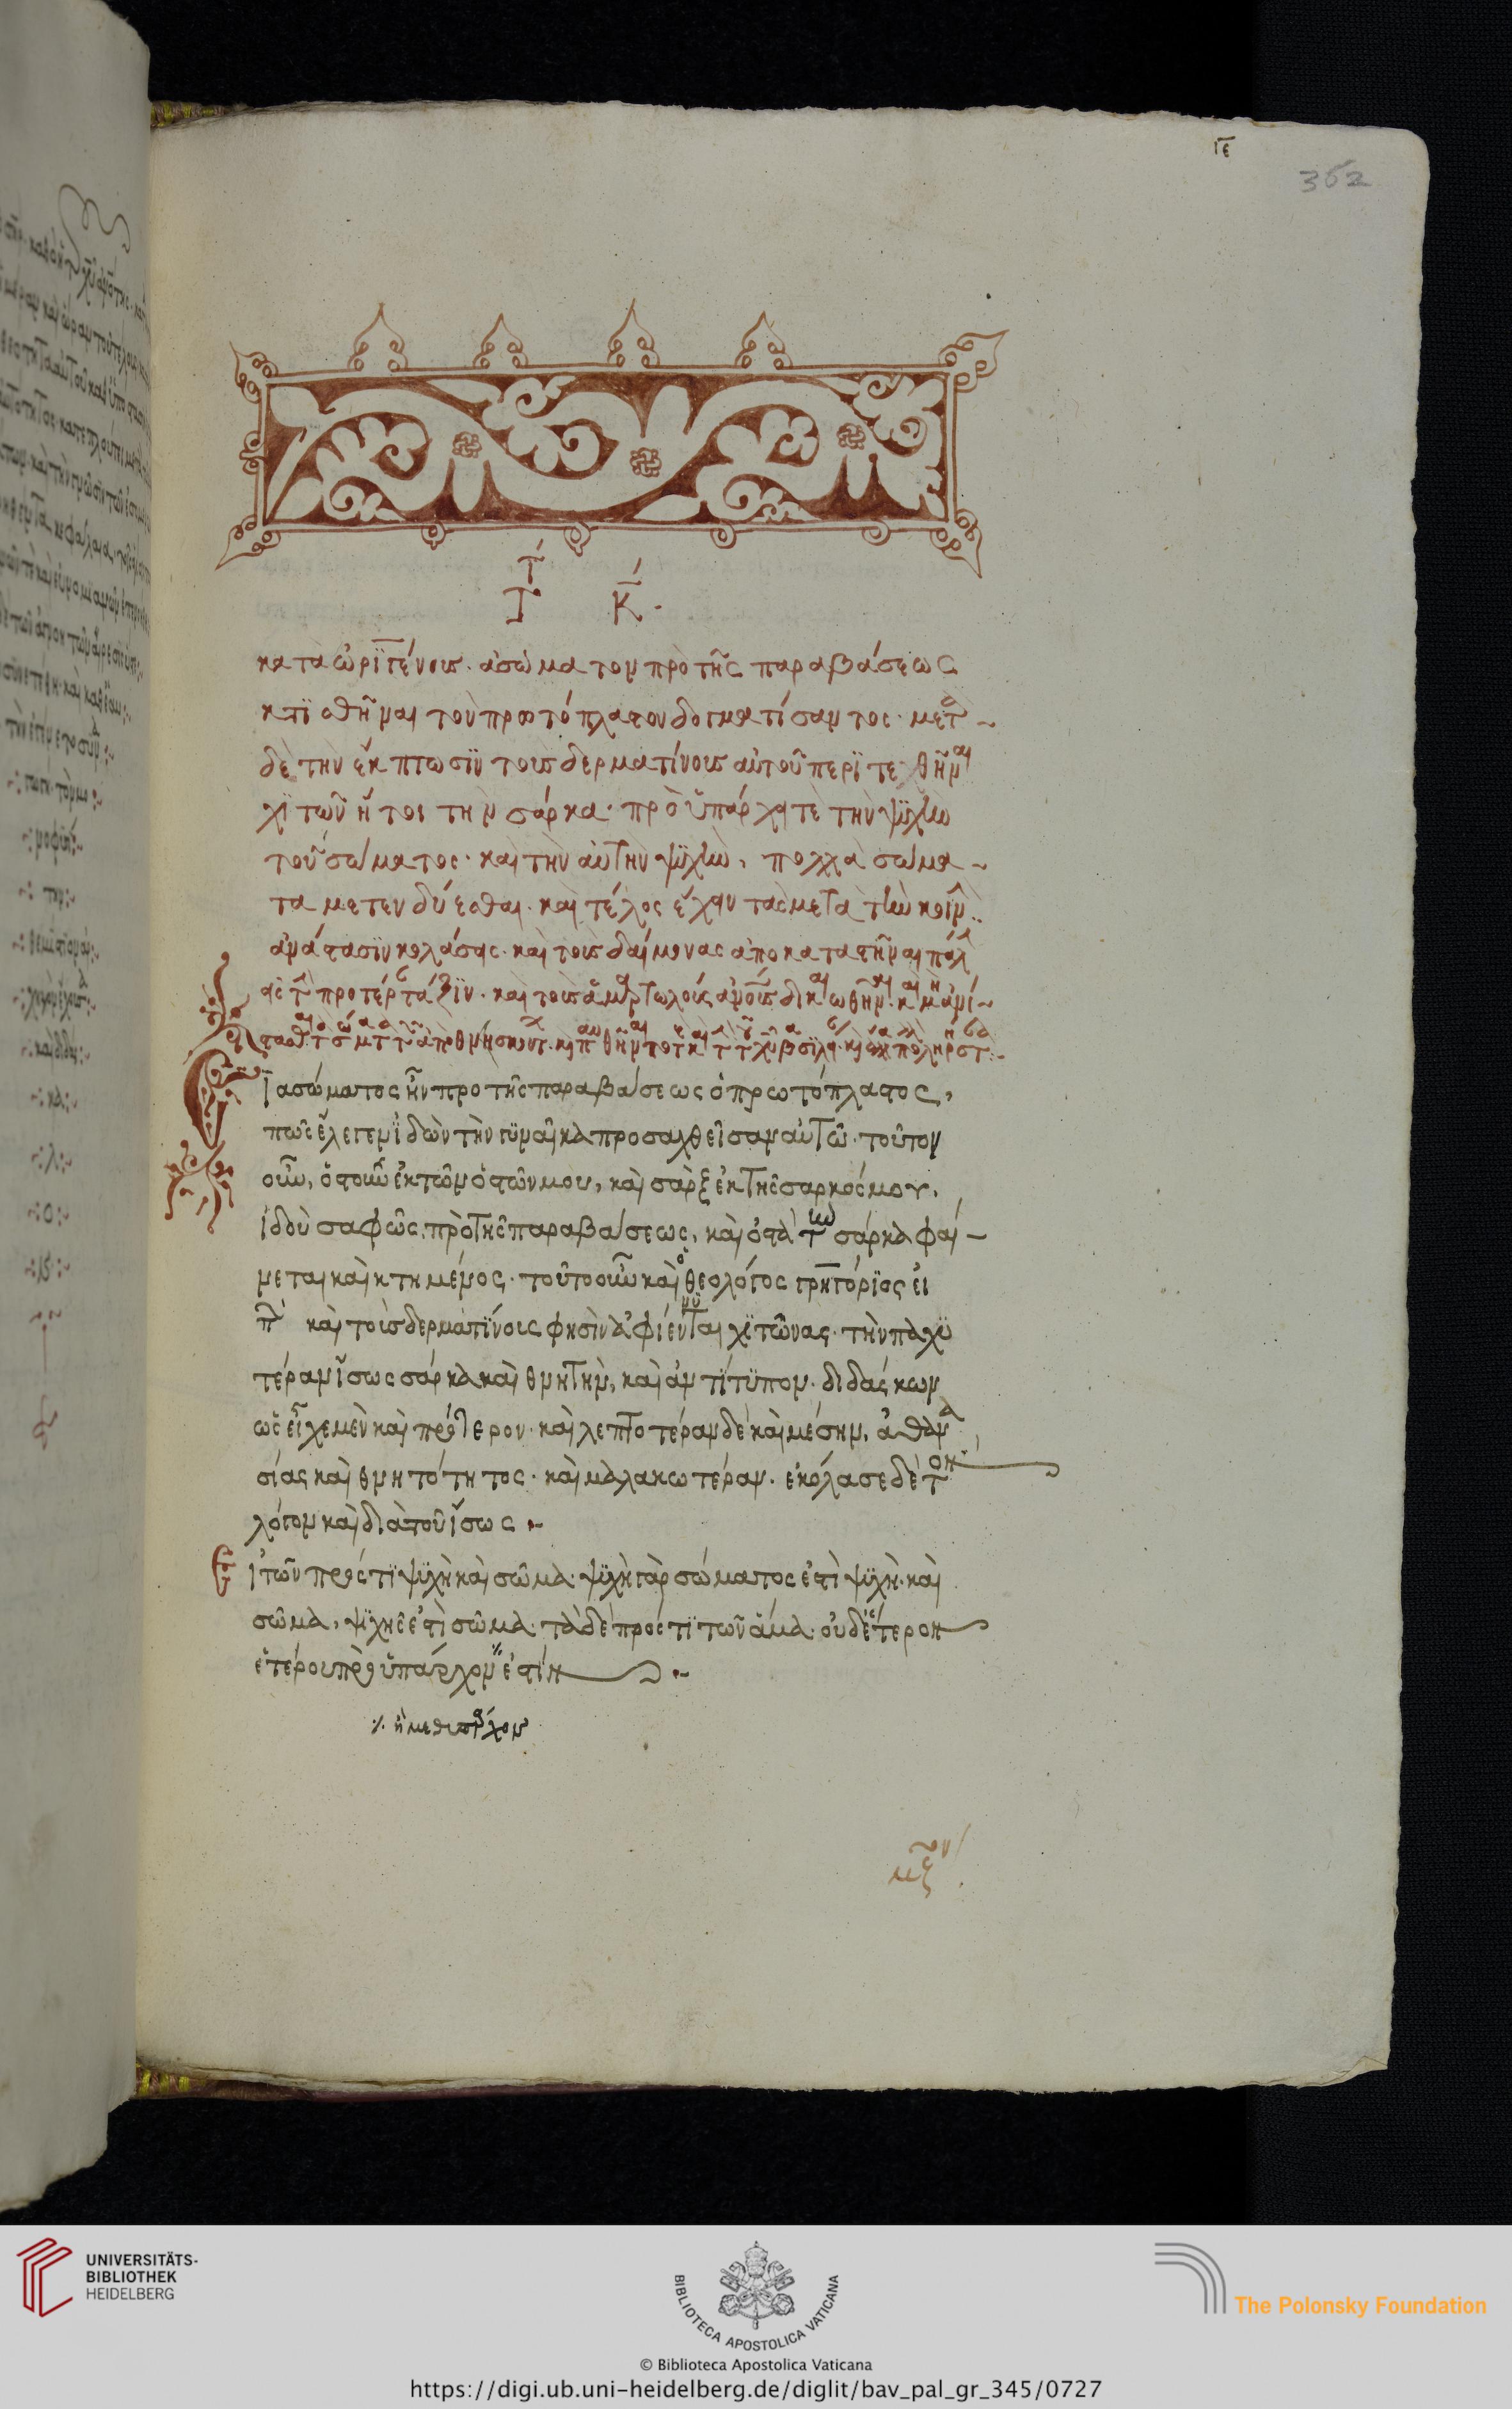 ιε
352
κατὰ ὠριγένους. ἀσώματον πρὸ τῆς παραβάσεως
κτισθῆναι τὸν πρωτόπλαστον δογματίσαντος. μετὰ
δὲ τὴν ἔκπτωσιν τοὺς δερματίνους αὐτοῦ περιτεθῆναι
χιτῶν ἤτοι τὴν σάρκα. προϋπάρχειν τὲ τὴν ψυχὴν
τοῦ σώματος. καὶ τὴν αὐτὴν ψυχὴν, πολλὰ σώμα
τα μετενδύεσθαι. καὶ τέλος ἔχειν τὰς μετὰ τὴν κοινὴν
ἀνάστασιν κολάσεις. καὶ τοὺς δαίμονας ἀποκαταστῆναι πάλιν
εἰς τὴν προτέραν τάξιν. καὶ τοὺς ἁμαρτωλοὺς
Εἰ ἀσώματος ἦν πρὸ τῆς παραβάσεως ὁ πρωτόπλαστος,
πῶς ἔλεγεν ἰδὼν τὴν γυναῖκα προσαχθεῖσαν αὐτῷ. τοῦτο νῦν
ὀστοῦν ἐκ τῶν ὀστῶν μου, καὶ σὰρξ ἐκ τῆς σαρκός μου.
ἰδοὺ σαφῶς. πρὸ τῆς παραβάσεως, καὶ ὀστᾶ τὲ σάρκα φαί
νεται κεκτημένος. τοῦτο οὖν καὶ ὁ θεολόγος γρηγόριος εἰ
πὼν καὶ τοὺς δερματίνους φησὶν ἀμφιέννυται χιτῶνας. τὴν παχυ
τέραν ἴσως σάρκα καὶ θνητὴν, καὶ ἀντίτυπον. διδάσκων
ὡς εἶχε μὲν καὶ πρότερον. καὶ λεπτοτέραν δὲ καὶ μέσην, ἀθανα
σίας καὶ θνητότητος. καὶ μαλακωτέραν. ἐκόλασε δὲ τὸν
λόγον καὶ διὰ τοῦ ἴσως
Ἔτι τῶν πρός τι ψυχὴ καὶ σῶμα. ψυχὴ γὰρ σώματος ἐστὶ ψυχὴ. καὶ
σῶμα, ψυχῆς ἐστὶ σῶμα. τὰ δὲ πρός τι τῶν ἅμα. οὐδέτερον
ἑτέρου προϋπάρχον ἐστίν
ἢ μεθυπάρχον
UNIVERSITÄTS-
BIBLIOTHEK
HEIDELBERG
BIBLIOTECA APOSTOLICA VATICANA
The Polonsky Foundation
© Biblioteca Apostolica Vaticana
https://digi.ub.uni-heidelberg.de/diglit/bav_pal_gr_345/0727